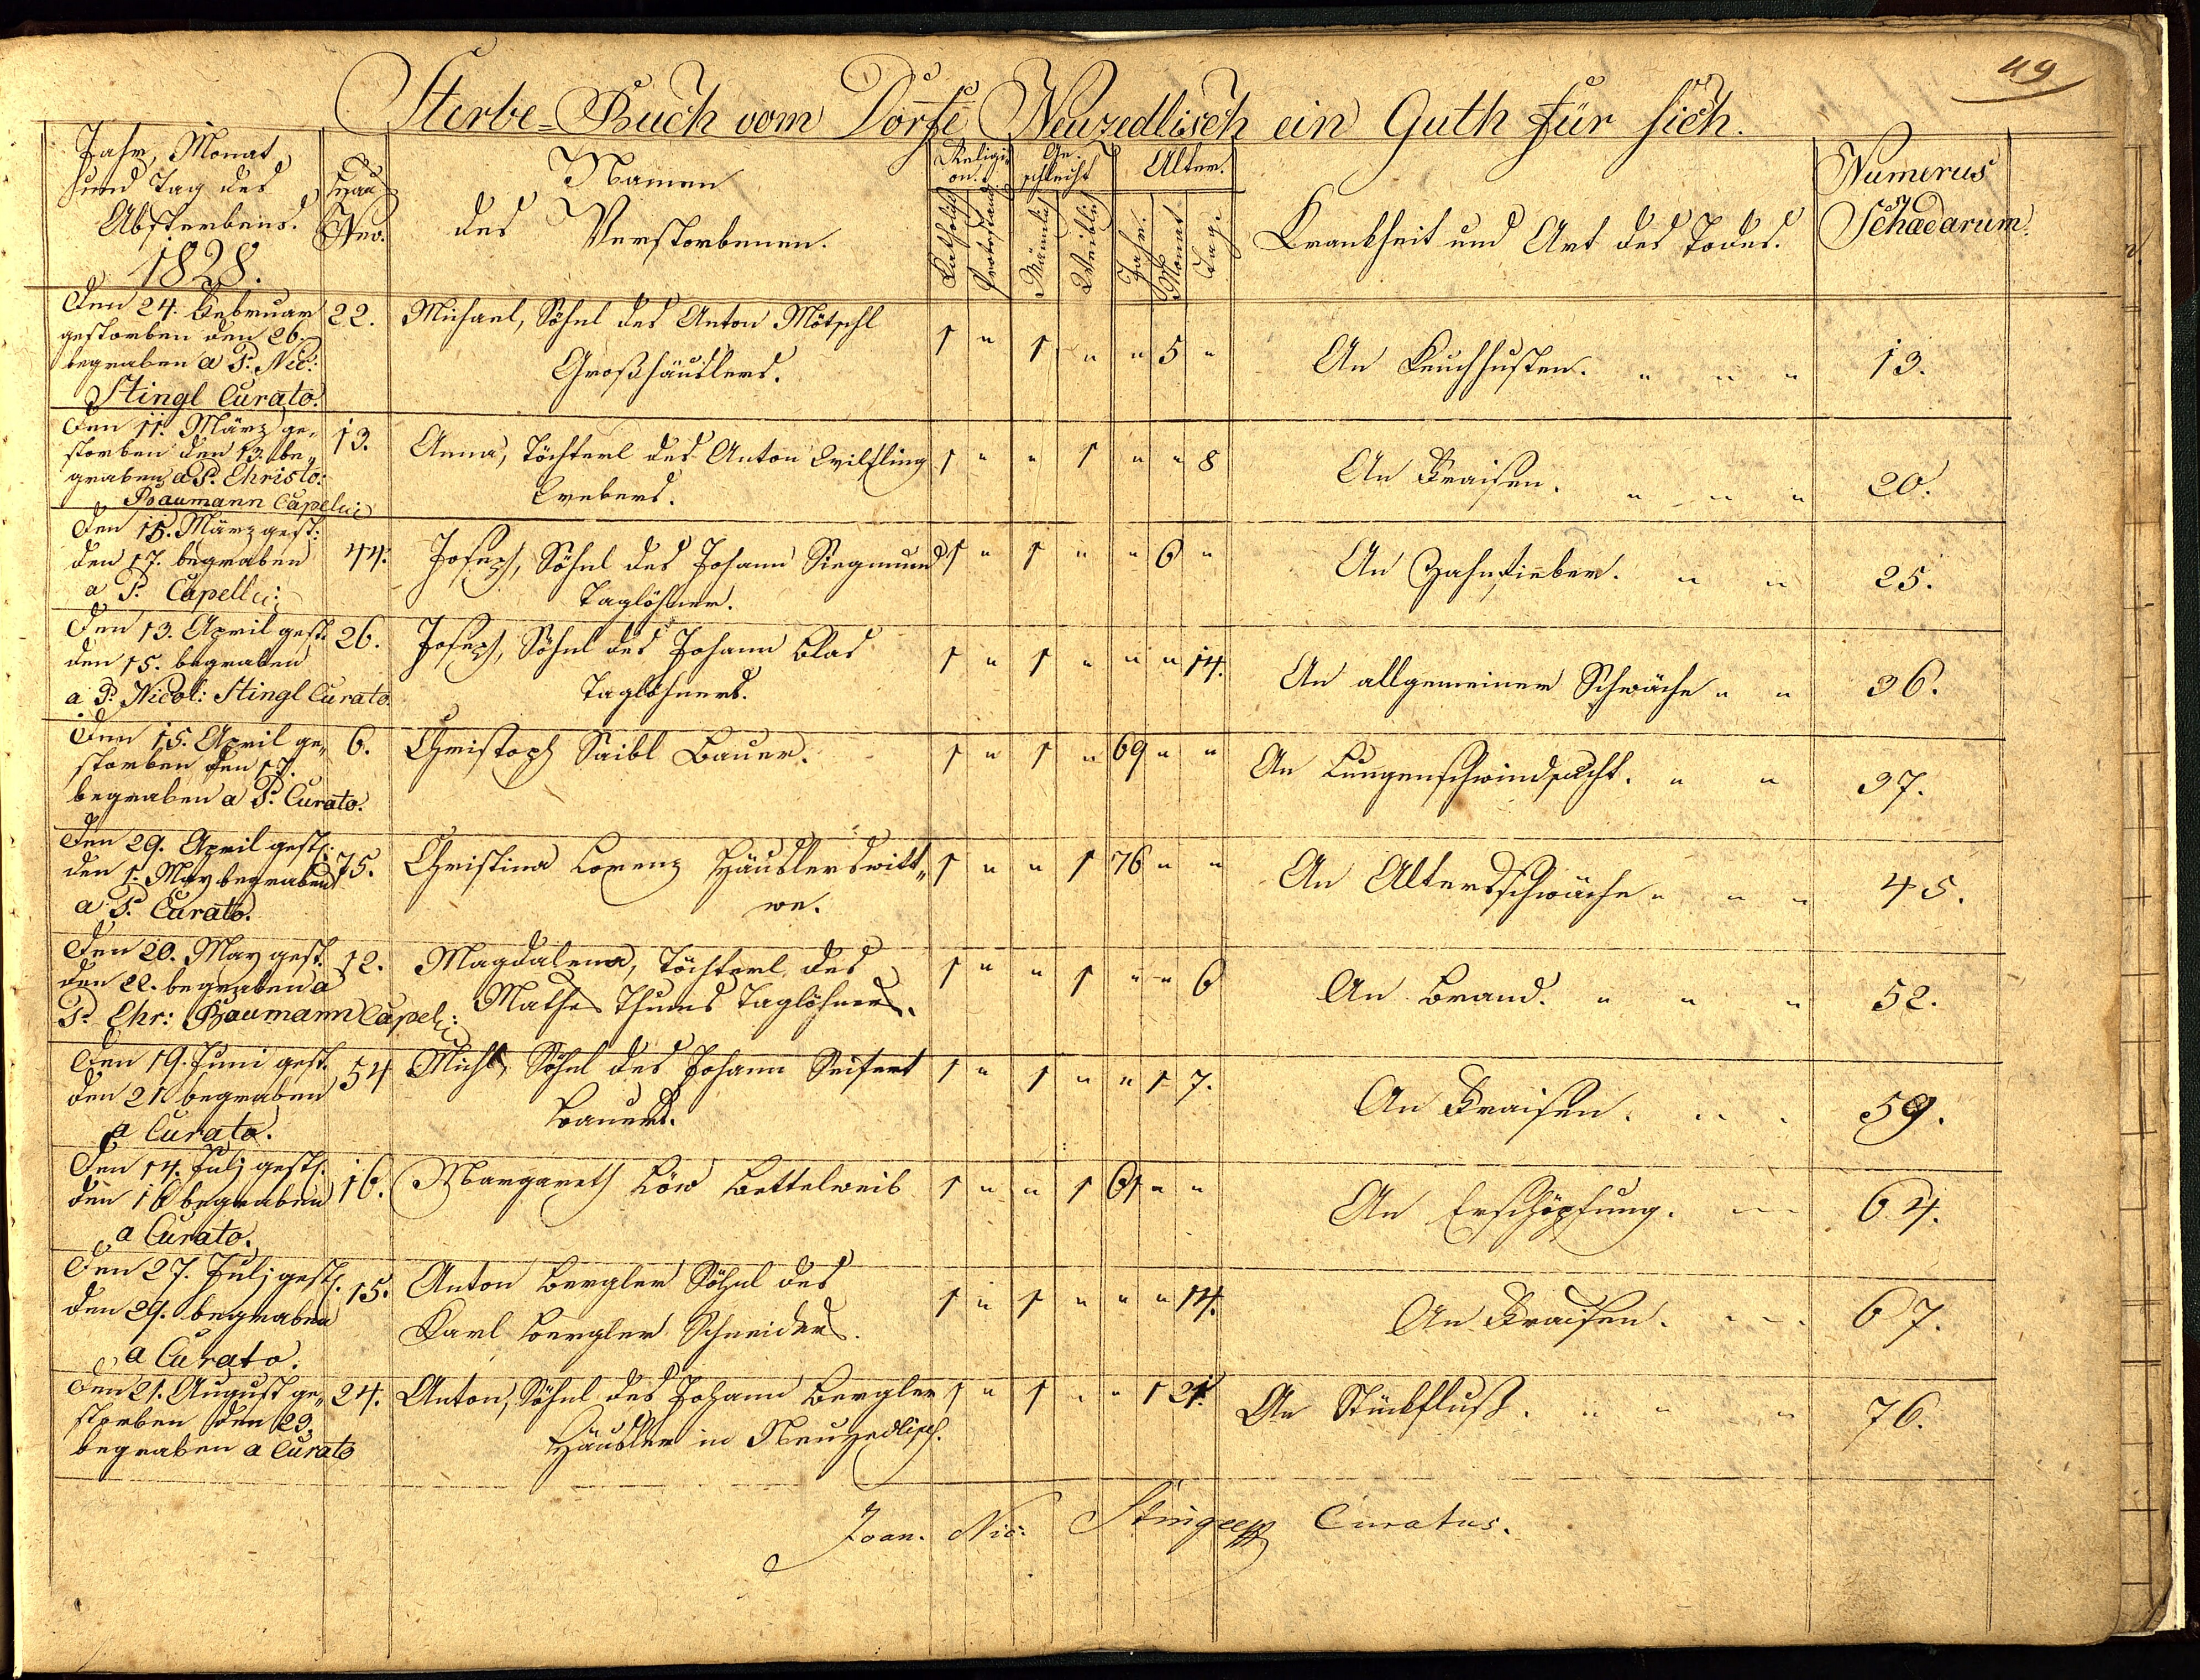 49
Sterbe=Buch vom Dorfe Neuzedlisch ein Guth für sich.
Jahr, Monat
und Tag des
Absterbens.
1828.
Haus
Nro.
Namen
des Verstorbenen.
Religi=
on.
Katholisch
Protestant
Ge=
schlecht
Männlich
Weiblich
Alter.
Jahr.
Monat
Tage
Krankheit und Art des Todes.
Numerus
Schaedarum.
Den 24. Februar
gestorben den 26.
begraben a P. Nic:
Stingl Curato.
22.
Michael, Söhnl des Anton Mötschl
Großhäuslers.
1 " 1 " " 5 "
An Keuchhusten. " " "
13.
Den 11. März ge„
storben den 13. be„
graben a P. Christo:
Baumann Capelli:
13.
Anna, Töchterl des Anton Wilfling
Webers.
1 " " 1 " " 8
An Fraisen. " " "
20.
Den 15. März gest:
den 17. begraben
a P. Capelli:
44.
Joseph, Söhnl des Johann Siegmund
Taglöhner.
1 " 1 " " 6 "
An Zahnfieber. " "
25.
Den 13. April gest.
den 15. begraben
a P. Nicol: Stingl Curato.
26.
Joseph, Söhnl des Johann Blas
Taglöhners.
1 " 1 " " " 14.
An allgemeiner Schwäche " "
36.
Den 15. April ge„
storben den 17.
begraben a P. Curato.
6.
Christoph Saibl Bauer.
1 " 1 " 69 " "
An Lungenschwindsucht. " "
37.
Den 29. April gest.
den 1. May begraben
a P. Curato.
75.
Christina Lorenz Häuslerswitt„
we.
1 " " 1 76 " "
An Altersschwäche " " "
45.
Den 20. May gest.
den 22. begraben a
P. Chr: Baumann Capel:
12.
Magdalena, Töchterl des
Mathes Thums Taglöhners.
1 " " 1 " " 6
An Brand. " " "
52.
Den 19. Juni gest.
den 21. begraben
a Curato.
54
Michl, Söhnl des Johann Seifert
Bauers.
1 " 1 " " 1 7.
An Fraisen. " "
59.
Den 14. Julj gest.
den 16 begraben
a Curato.
16.
Margareth Löw Bettelweib
1 " " 1 61 " "
An Erschöpfung. " "
64.
Den 27. Julj gest.
den 29. begraben
a Curato.
15.
Anton Bergler Söhnl des
Karl Bergler Schneiders.
1 " 1 " " " 14.
An Fraisen. " "
67.
Den 21. August ge„
storben den 23.
begraben a Curato
24.
Anton, Söhnl des Johann Bergler
Häusler in Neuzedlisch.
1 " 1 " " 1 21.
An Stickfluß. " " "
76.
Joan. Nic: Stingl Curatus.